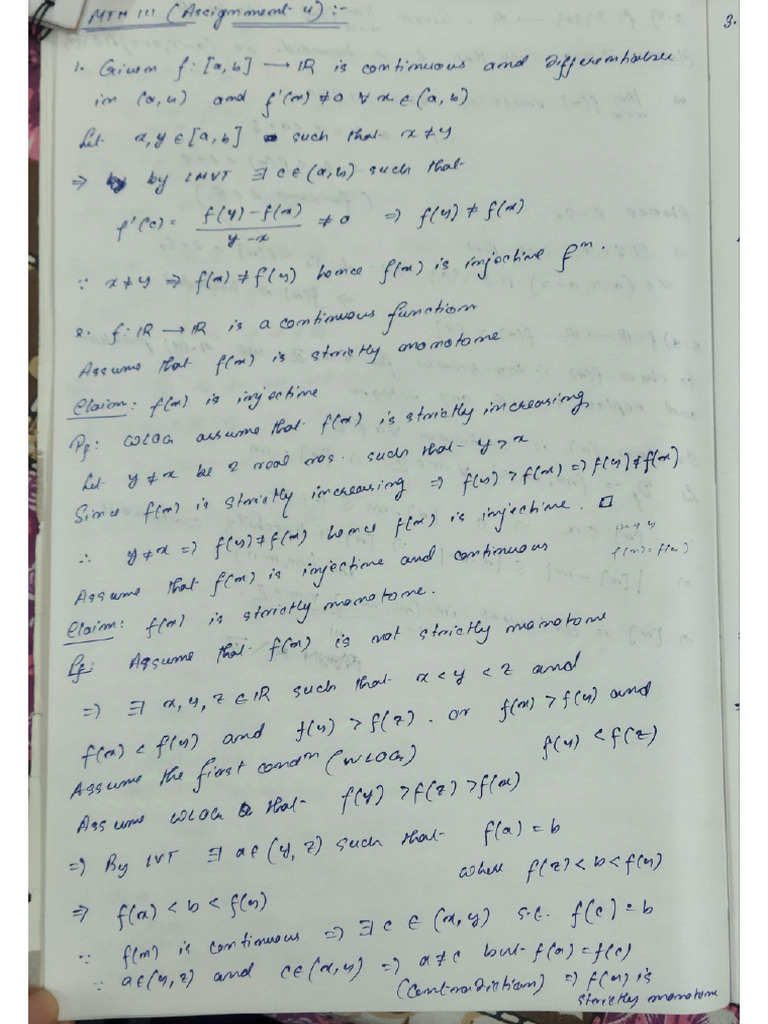 MTH 111 (Assignment 4) :-
3.
1. Given f: [a,b] → IR is continuous and differentiable
in (a,b) and f'(x) ≠ 0 ∀ x ∈ (a,b)
Let x,y ∈ [a,b] such that x ≠ y
⇒ by LMVT ∃ c ∈ (a,b) such that
f'(c) = (f(y) - f(x))/(y - x) ≠ 0 ⇒ f(y) ≠ f(x)
∵ x ≠ y ⇒ f(x) ≠ f(y) hence f(x) is injective fⁿ.
2. f: IR → IR is a continuous function
Assume that f(x) is strictly monotone
Claim: f(x) is injective
Pf: WLOG assume that f(x) is strictly increasing
Let y ≠ x be 2 real nos. such that y > x
Since f(x) is strictly increasing ⇒ f(y) > f(x) ⇒ f(y) ≠ f(x)
∴ y ≠ x ⇒ f(y) ≠ f(x) hence f(x) is injective. □
Assume that f(x) is injective and continuous
Claim: f(x) is strictly monotone.
Pf: Assume that f(x) is not strictly monotone
⇒ ∃ x, y, z ∈ IR such that x < y < z and
f(x) < f(y) and f(y) > f(z). or f(x) > f(y) and
f(y) < f(z)
Assume the first condⁿ (WLOG)
Assume WLOG that f(y) > f(z) > f(x)
⇒ By IVT ∃ a ∈ (y, z) such that f(a) = b
where f(z) < b < f(y)
⇒ f(x) < b < f(y)
∵ f(x) is continuous ⇒ ∃ c ∈ (x, y) s.t. f(c) = b
∵ a ∈ (y, z) and c ∈ (x, y) ⇒ a ≠ c but f(a) = f(c)
(Contradiction) ⇒ f(x) is
strictly monotone